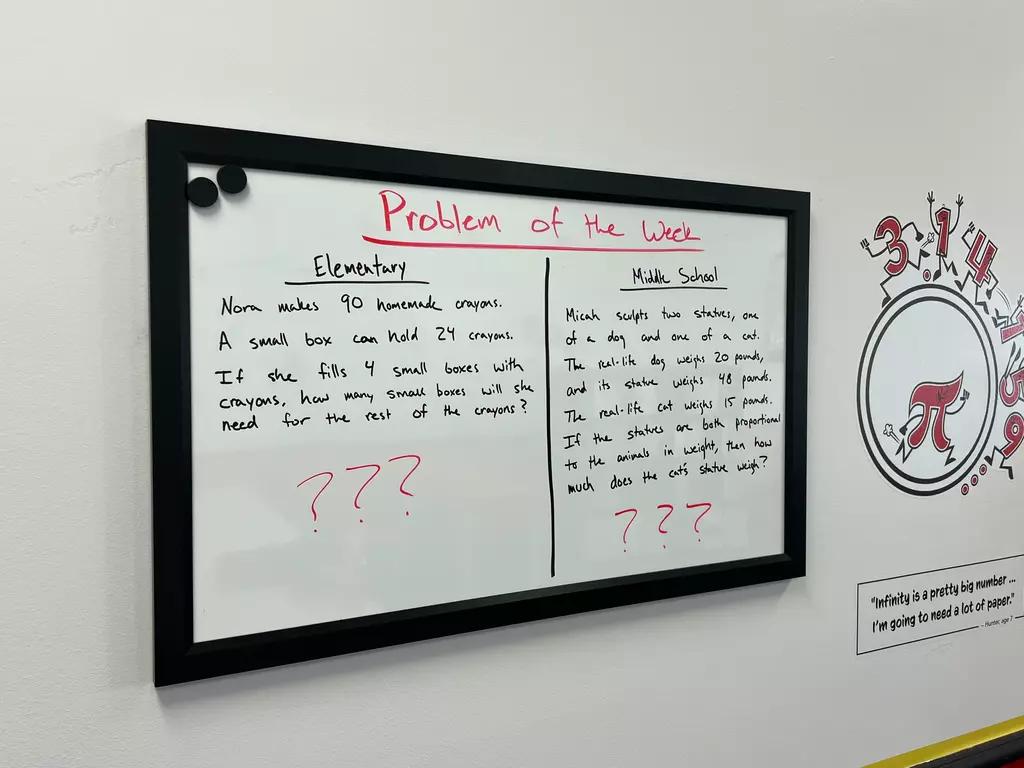 Problem of the Week
Elementary
Nora makes 90 homemade crayons.
A small box can hold 24 crayons.
If she fills 4 small boxes with
crayons, how many small boxes will she
need for the rest of the crayons?
? ? ?
Middle School
Micah sculpts two statues, one
of a dog and one of a cat.
The real-life dog weighs 20 pounds,
and its statue weighs 48 pounds.
The real-life cat weighs 15 pounds.
If the statues are both proportional
to the animals in weight, then how
much does the cat's statue weigh?
? ? ?
3.14159
π
"Infinity is a pretty big number ...
I'm going to need a lot of paper."
– Hunter, age 7